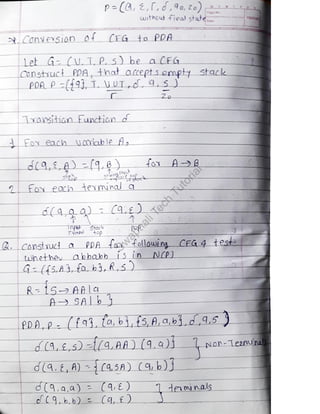 P=(Q, Σ, Γ, δ, q0, Z0)
without final state
* Conversion of CFG to PDA
Let G= (V, T, P, S) be a CFG
Construct PDA, that accepts empty stack
PDA P = ({q}, T, VUT, δ, q, S)
Γ Z0
Transition Function δ
1 For each variable A,
δ(q, ε, A) = (q, B) for A→B
2. For each terminal a
δ(q, a, a) = (q, ε)
input stack
top
Q. Construct a PDA for following CFG & test
whether abbabb is in N(P)
G = ({S,A}, {a,b}, R, S)
R = { S → AA | a
A → SA | b }
PDA, P = ({q}, {a,b}, {S,A,a,b}, δ, q, S)
δ(q, ε, S) = {(q,AA) (q,a)} } Non-Terminals
δ(q, ε, A) = {(q,SA) (q,b)}
δ(q, a, a) = (q, ε) } terminals
δ(q, b, b) = (q, ε)
Tech Tutorial